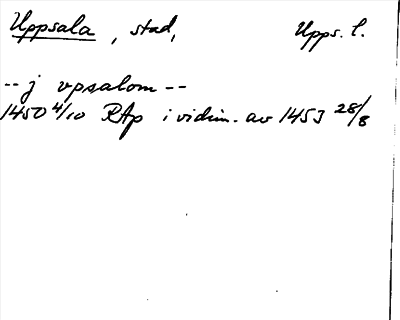 Uppsala, stad, Upps. l.
-- j vpsalom --
1450 4/10 RAp i vidim. av 1453 28/8